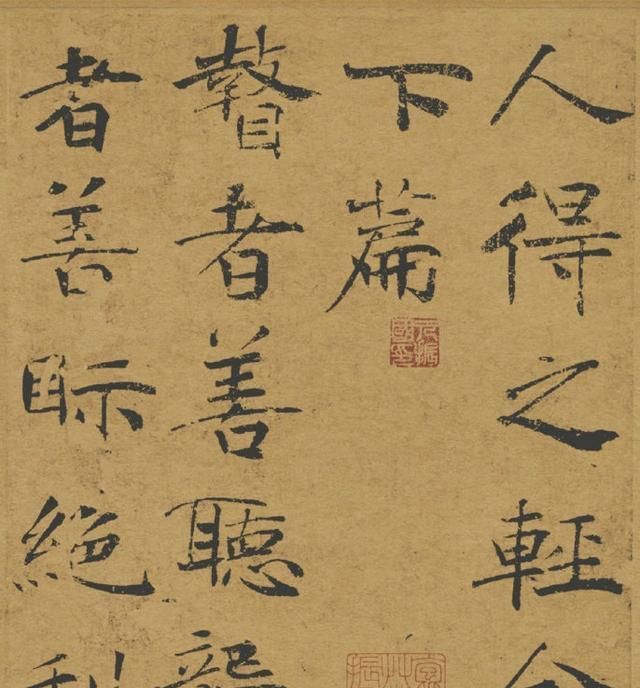 人得之輕
下篇
瞽者善聽
者善眎絕利